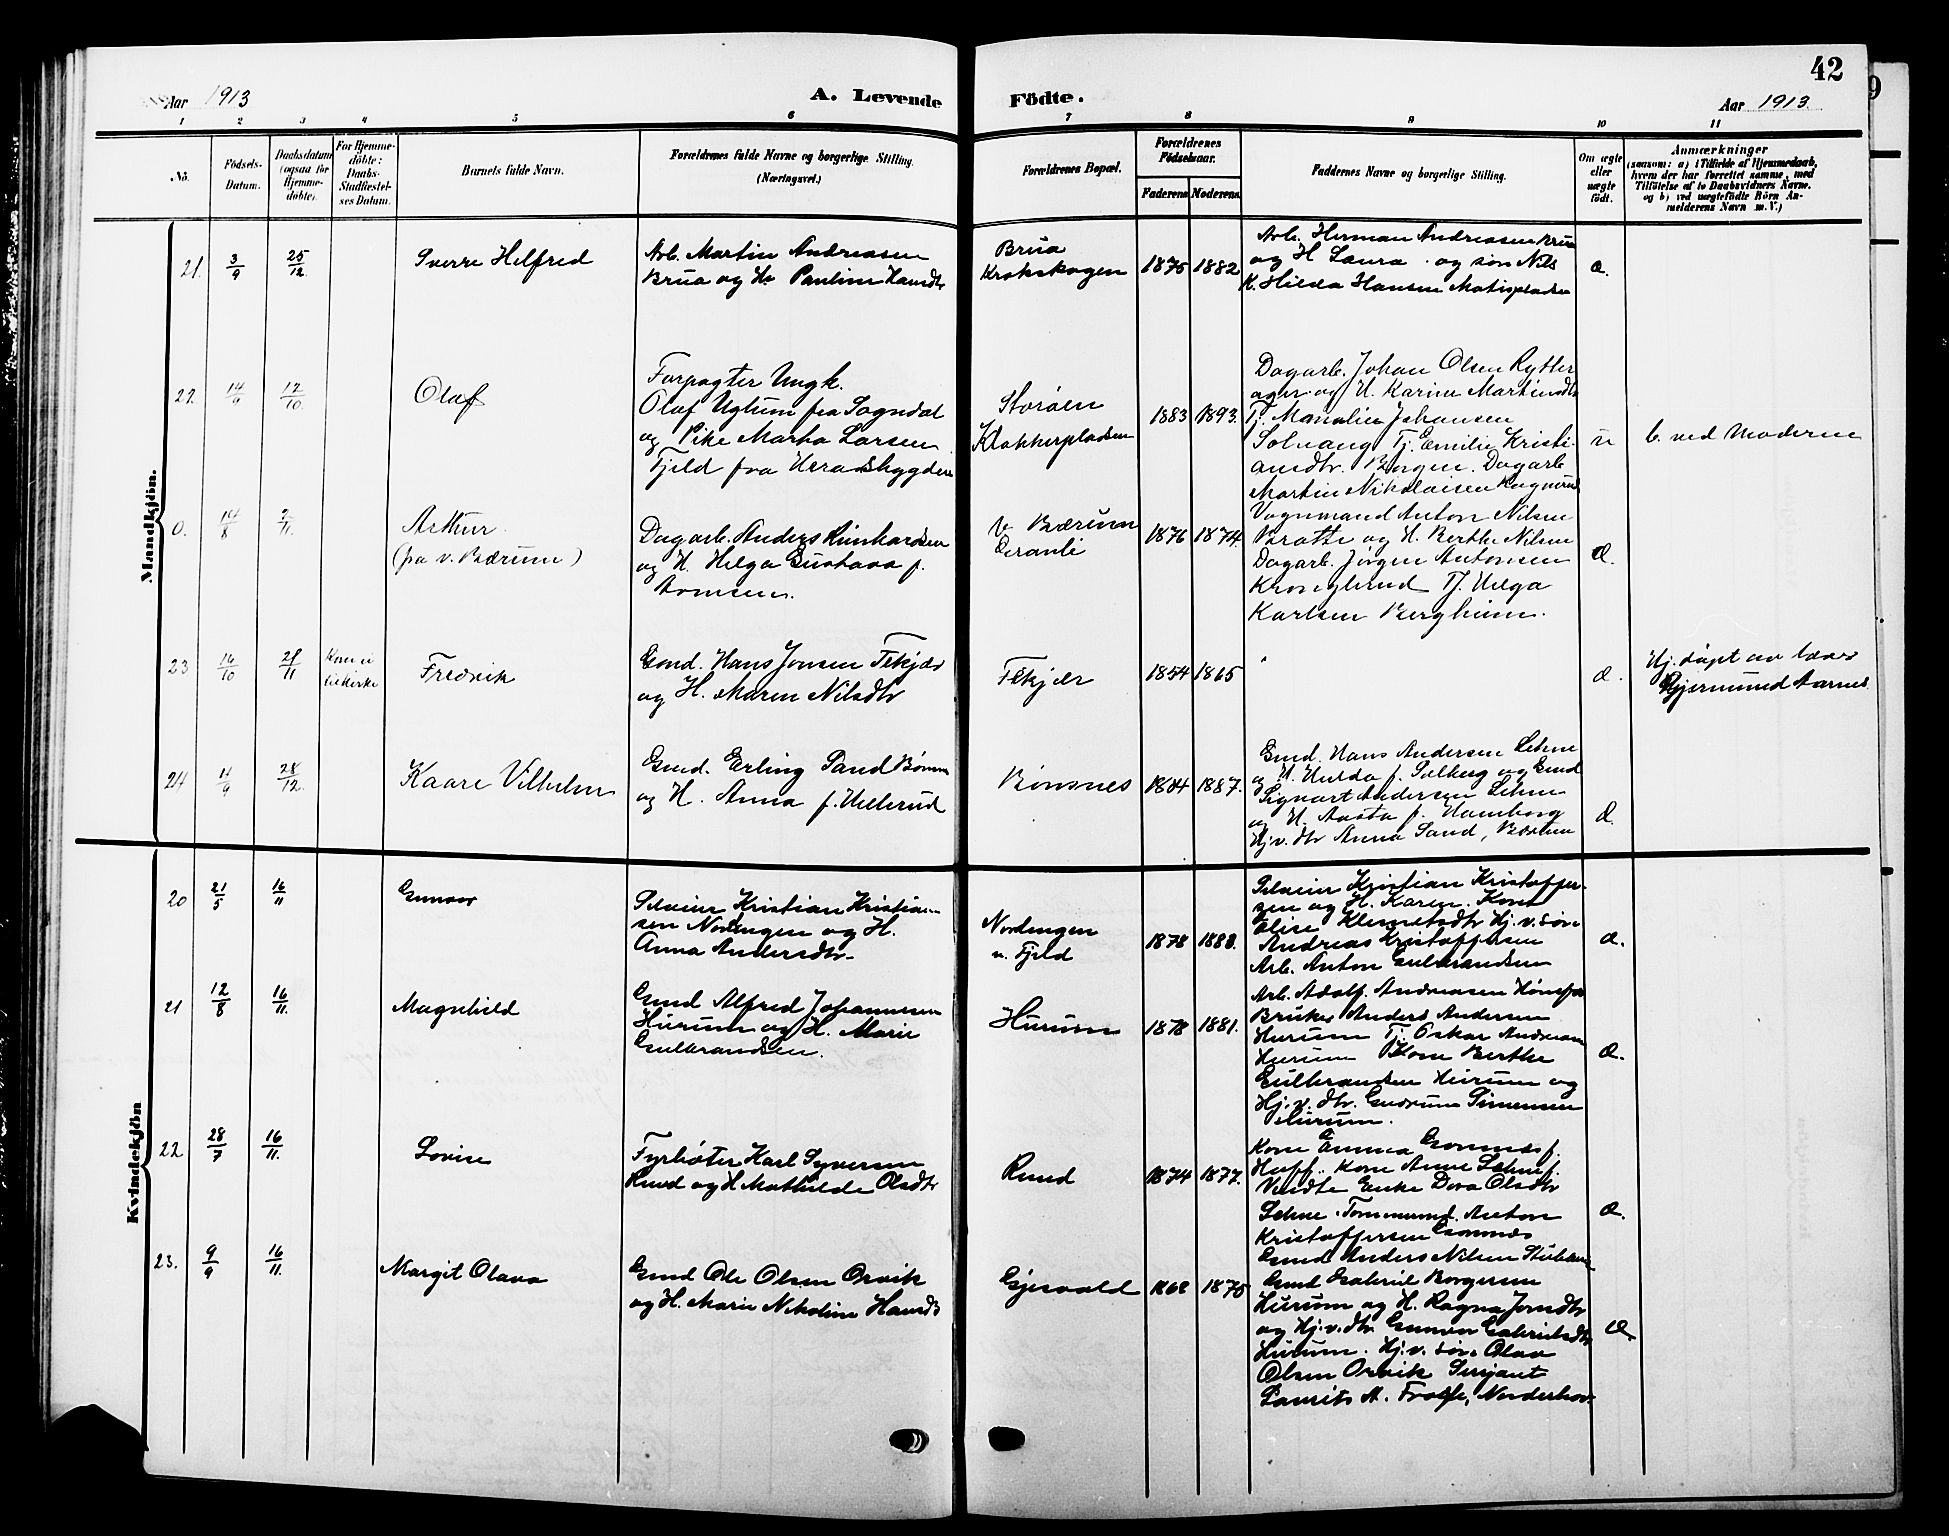 42
Aar 1913
A. Levende
Födte.
Aar 1913.
1 2 3 4 5 6 7 8 9 10 11
No.
Födsels-
Datum.
Daabsdatum
(ogsaa for
Hjemme-
döbte).
For Hjemme-
döbte:
Daabs-
Stadfæstel-
ses Datum.
Barnets fulde Navn.
Forældrenes fulde Navne og borgerlige Stilling.
(Næringsvei.)
Forældrenes Bopæl.
Forældrenes
Födselsaar.
Faderens
Moderens.
Faddernes Navne og borgerlige Stilling.
Om ægte
eller
uægte
födt.
Anmærkninger
(saasom: a) i Tilfælde af Hjemmedaab,
hvem der har forrettet samme, med
Tilföielse af to Daabsvidners Navne,
og b) ved uægtefödte Börn An-
melderens Navn m. V.)
Mandkjön.
21. 3/9 25/12
Sverre Helfred
Arb. Martin Andreasen
Brua og H. Pauline Hansdtr
Brua
Krokskogen
1875 1882
Arb. Herman Andreasen Brua
og H Laura og søn Nils
K. Hilda Hansen
æ.
22. 14/9 12/10
Olaf
Forpagter Ungk.
Olaf Uglum fra Sogndal
og Pike Marha Larsen
Fjeld fra
Storøen
Klokkerpladsen
1883 1893.
Dagarb. Johan Olsen Rytter
ager og H. Karine Martinsdtr
Tj. Johansen
Solvang Tj. Emilie Kristi-
ansdtr. Borgen. Dagarb
Martin Nikolaisen
u
b. ved Moderen
0. 14/8 2/11.
Arthur.
(fra v. Bærum)
Dagarb. Anders Reinhardsen
og H. Helga Gustava f.
Aomsen.
V. Bærum
Granli
1876 1874.
Vognmand Anton Nilsen
Bratte og H. Berthe Nilsen
Dagarb. Jørgen Antonsen
Kronglund Tj. Helga
Karlsen Bergheim.
æ.
23 16/10 21/11
Kom ei
til Kirke
Fredrik
Gmd. Hans Jonsen Fekjær
og H. Maren Nilsdtr
Fekjær
1854 1865
æ.
Hj. døpt av lærer
Gjermund Aarnes.
24 11/9 28/12.
Kaare Vilhelm
Gmd. Erling Sand Bønsnes
og H. Anna f. Hillerud
Bønsnes
1884 1887.
Gmd. Hans Andersen Lehne
og H. Hulda f. Solberg og Gmd
Sigvart Andersen Lehne
og H. Aasta f. Hamborg
Hj.v. dtr Anna Sand, Bærum
æ.
Kvindekjön
20 21/5 16/11
Gunvor
Seleier Kristian Kristian-
sen Nordengen og H.
Anna Andersdtr.
Nordengen
u. Fjeld
1878 1888.
Seleier Kristian Kristoffer-
sen og H. Karen. Kone
Elise Klemetsdtr Hj.v. søn
Andreas Kristoffersen
Arb. Anton Gulbrandsen
æ.
21 12/8 16/11.
Magnhild
Gmd Alfred Johannesen
Hurum og H. Marie
Gulbrandsen.
Hurum
1878 1881.
Arb. Adolf Andreasen Hønefos
Bruker Anders Andersen
Hurum Tj. Oskar Andersen
Hurum Kone Berthe
Gulbrandsen Hurum og
Hj.v. dtr. Gudrun Simensen
Hurum.
æ.
22 28/7 16/11.
Lovise
Fyrbøter Karl Syversen
Rund og H Mathilde Olsdtr
Rund
1874 1877.
Kone Emma Gomnæs f.
Hoff. Kone Anne Lehne f.
Enke Dora Olsdtr
Lehne. Tømmermd. Anton
Kristoffersen Gomnæs
æ.
23. 9/9 16/11.
Margit Olava
Gmd Ole Olsen Orvik
og H. Marie Nikoline Hansdtr
Gjesvald
1868 1875
Gmd Anders Nilsen
Gmd Gabriel Borgersen
Hurum og H. Ragna Jonsdtr
og Hj.v. dtr. Gunvor Gabrielsdtr
Hurum. Hj.v. søn Olav
Olsen Orvik Serjant
Laurits A. Frolse, Norderhov.
æ.